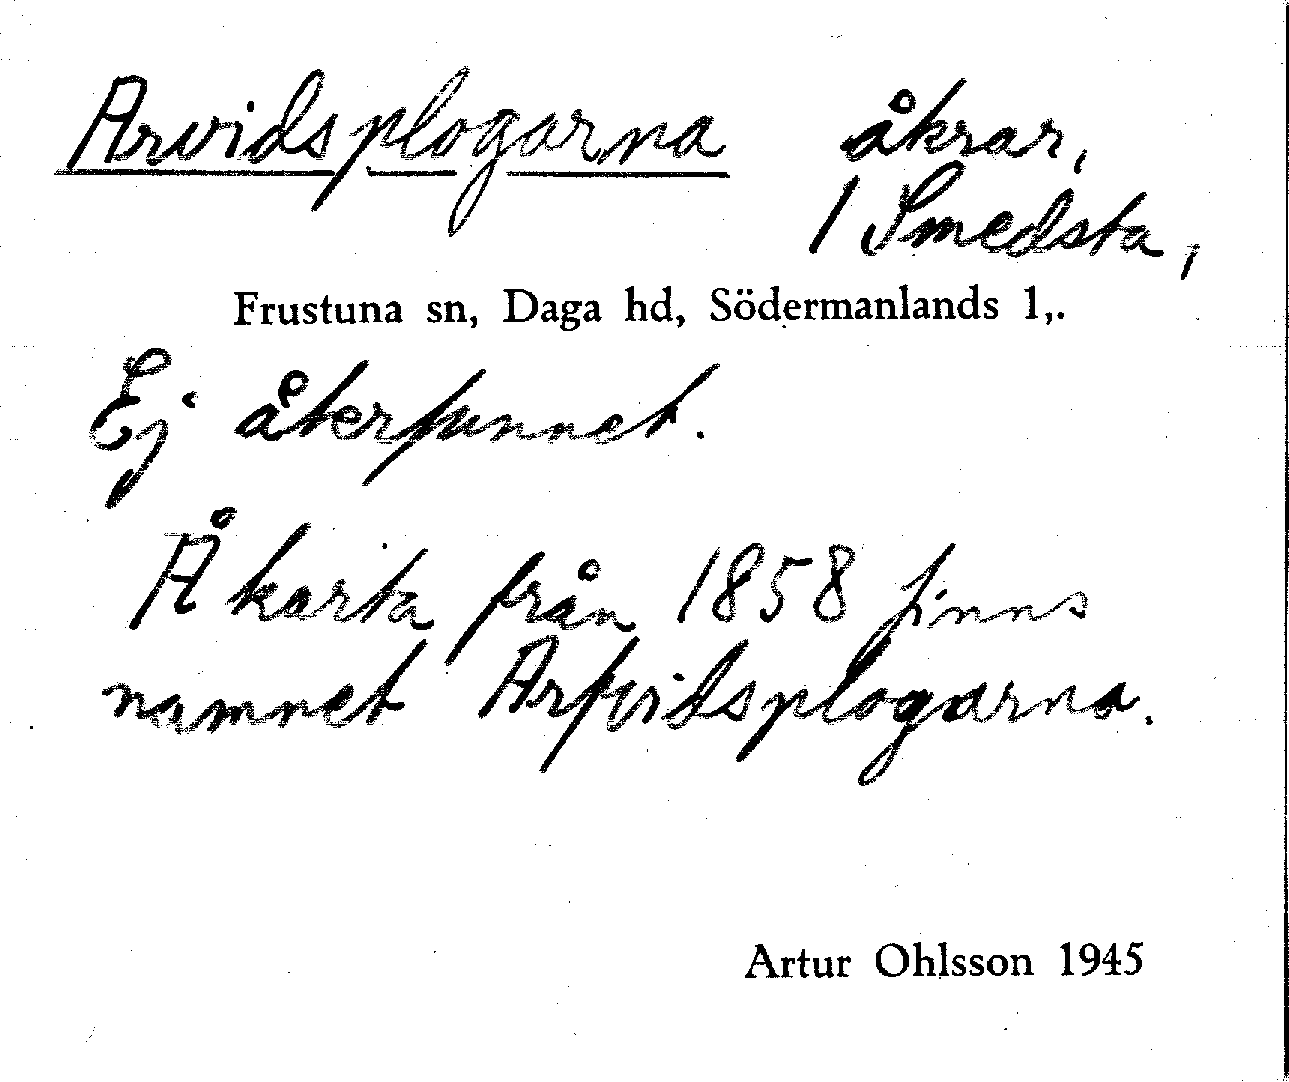 Arvidsplogarna åkrar,
1 Smedsta,
Frustuna sn, Daga hd, Södermanlands l,.
Ej återfunnet.
Å karta från 1858 finns
namnet Arfvidsplogarna.
Artur Ohlsson 1945